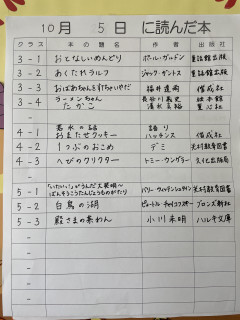 10月 5日 に読んだ本
クラス 本の題名 作者 出版社
3-1 おとなしいめんどり ポール・ガルドン 童話館出版
3-2 あくたれラルフ ジャック・ガントス 童話館出版
3-3 おばあちゃんをすてちゃいやだ 福井達雨 偕成社
3-4 ラーメンちゃん 長谷川義史 絵本館
たかこ 清水真裕 童心社
4-1 若水の話 語り
おまたせクッキー ハッチンス 偕成社
4-2 1つぶのおこめ デミ 光村教育図書
4-3 へびのクリクター トミー・ウンゲラー 文化出版局
5-1 「いたいい!」がうんだ大発明〜 バリー・ウィッテンシュタイン 光村教育図書
ばんそうこうたんじょうものがたり
5-2 白鳥の湖 ピョートル・チャイコフスキー ブロンズ新社
5-3 殿さまの茶わん 小川未明 ハルキ文庫